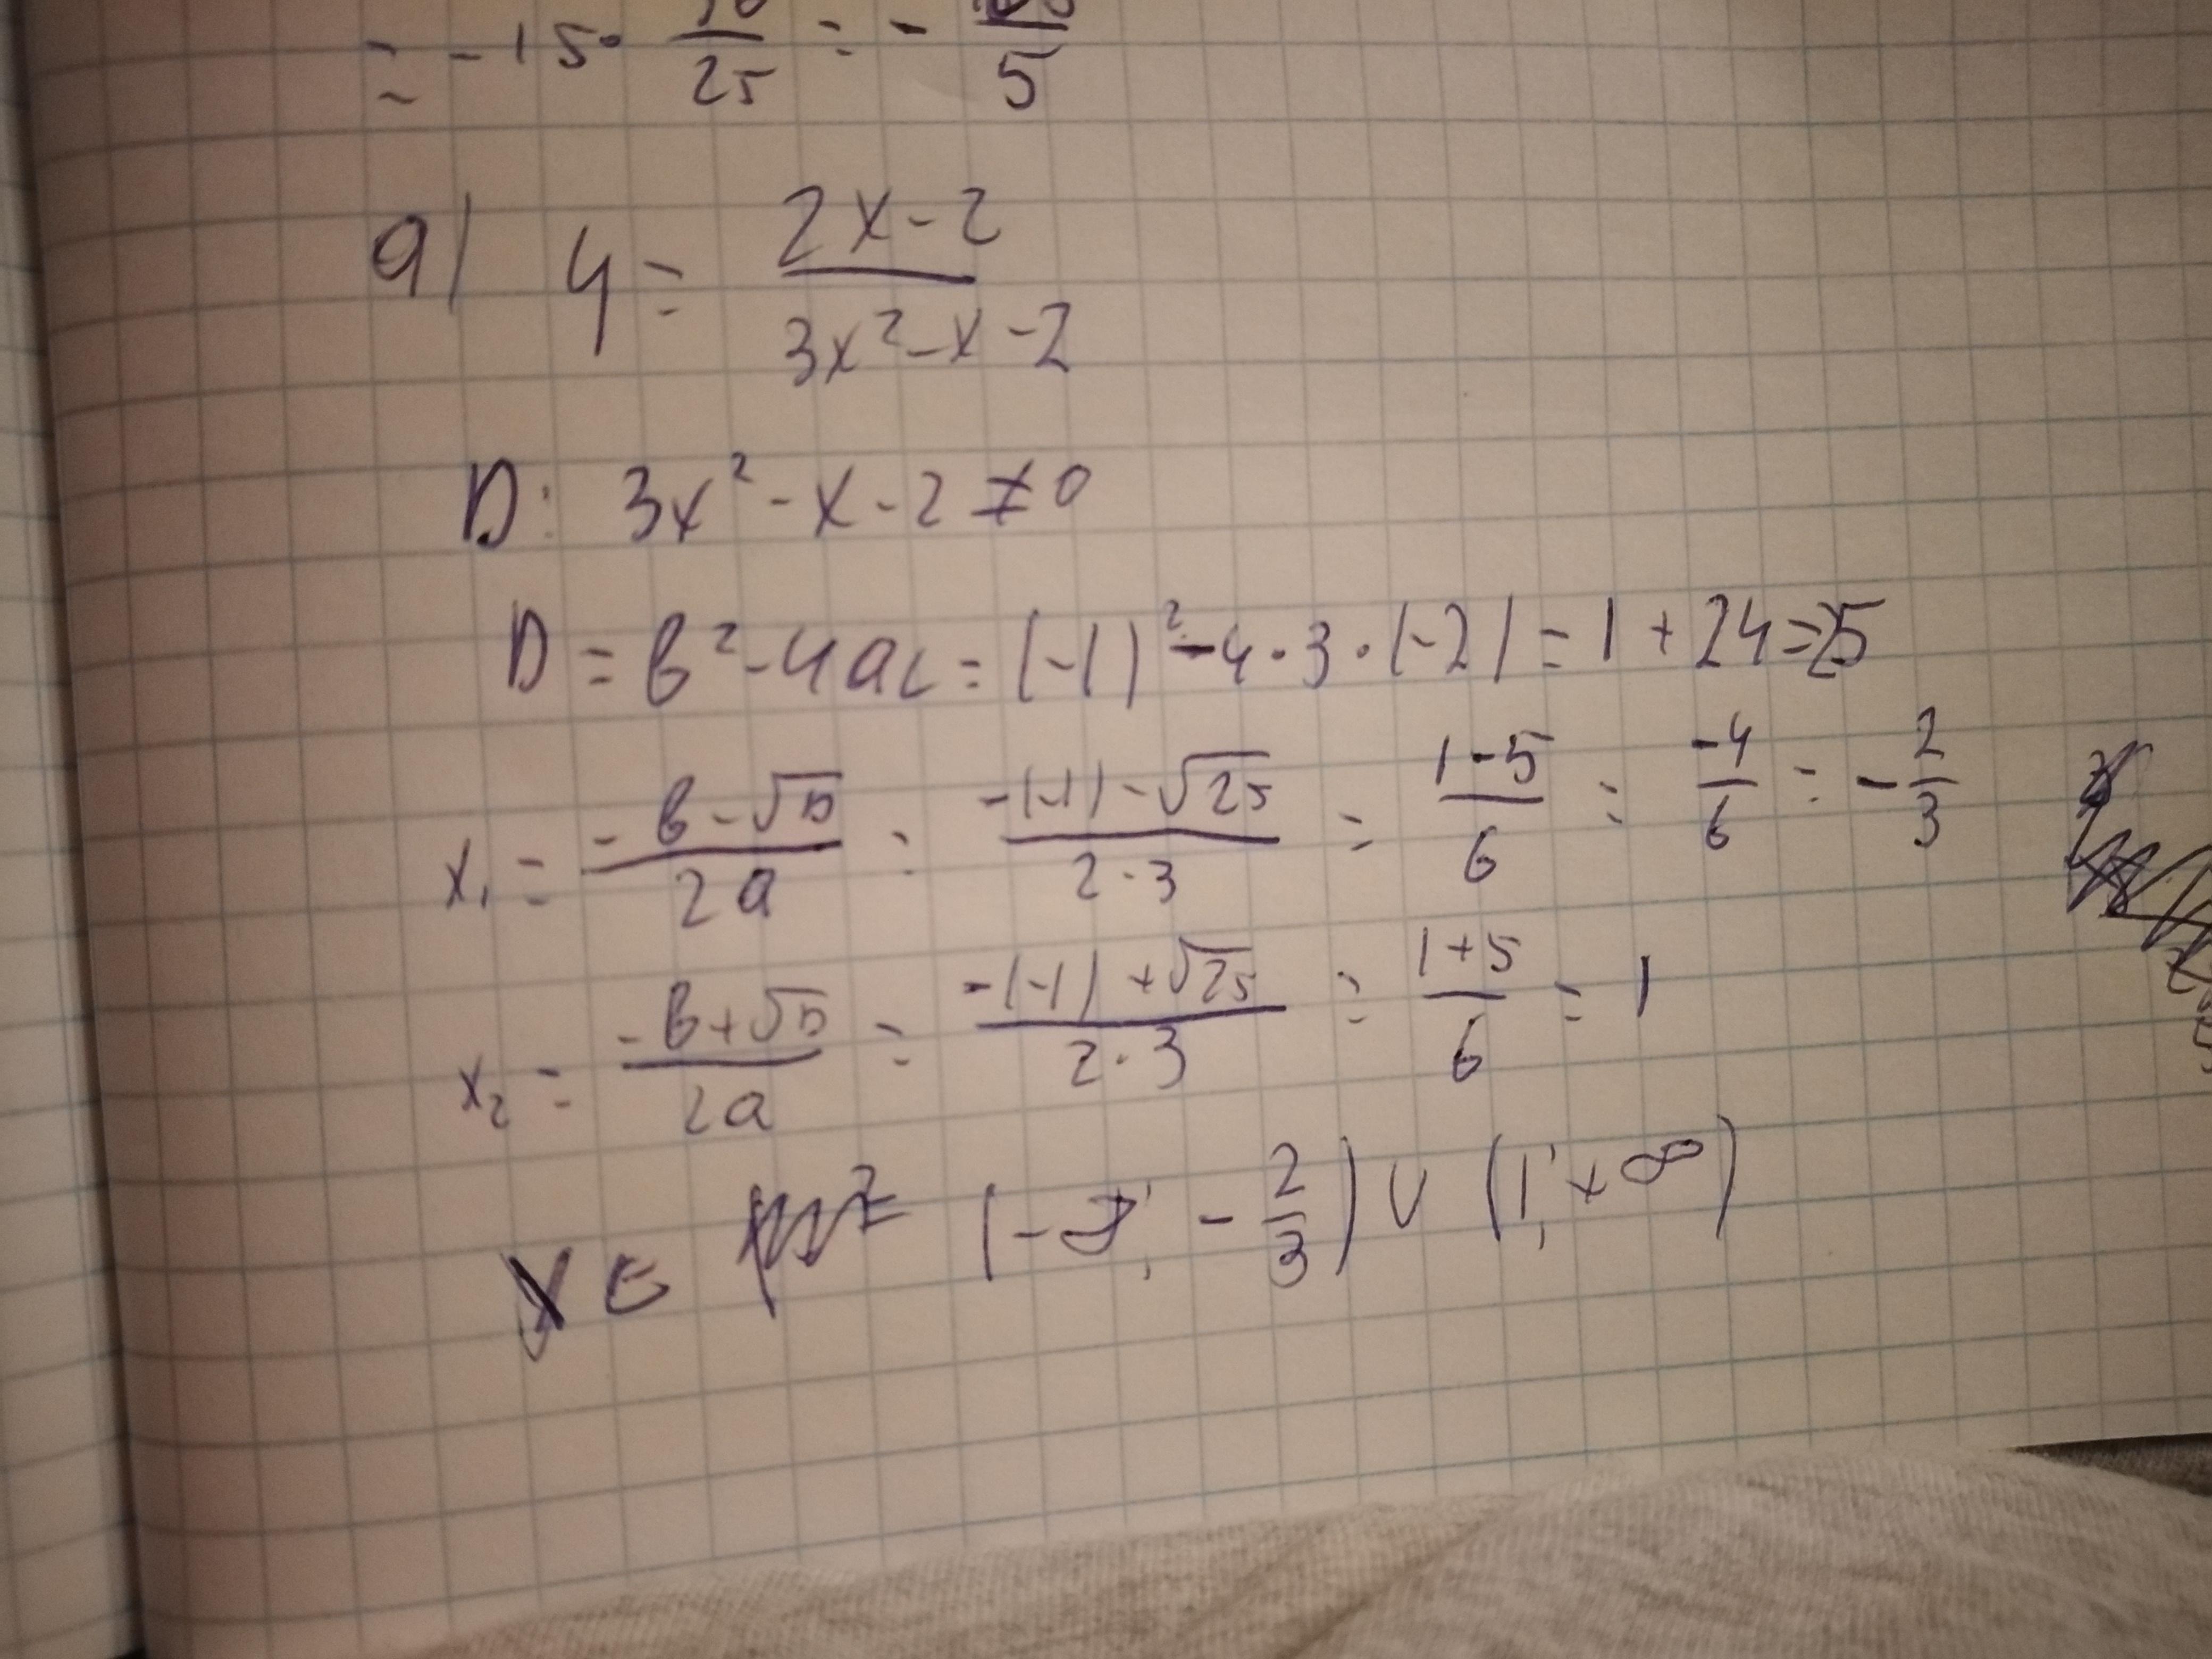 = -15 · /25 = - /5
a) y = (2x-2)/(3x²-x-2)
D: 3x²-x-2 ≠ 0
D = b²-4ac = (-1)²-4·3·(-2) = 1+24=25
x₁ = (-b-√D)/2a = (-(-1)-√25)/(2·3) = (1-5)/6 = -4/6 = -2/3
x₂ = (-b+√D)/2a = (-(-1)+√25)/(2·3) = (1+5)/6 = 1
∈ ; -2/3) ∪ (1; +∞)